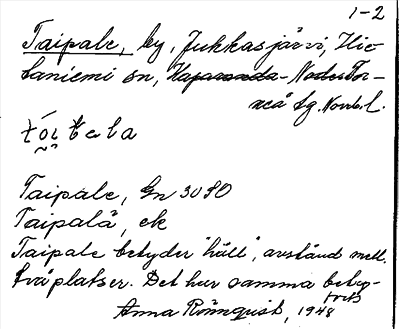 1-2
Taipale, by, Jukkasjärvi, Hie-
taniemi sn, Haparanda-NederTor-
neå tg. Norrb. l.
Taipale, Gn 3080
Taipalå, ek
Taipale betyder "håll", avstånd mell.
två platser. Det har samma betyd-
Anna Rönnquist, 1948